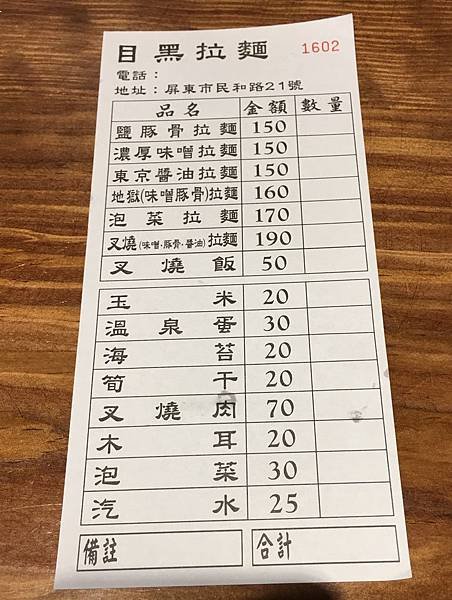 目黑拉麵 1602
電話：
地址：屏東市民和路21號
品名 金額 數量
鹽豚骨拉麵 150
濃厚味噌拉麵 150
東京醬油拉麵 150
地獄(味噌豚骨)拉麵 160
泡菜拉麵 170
叉燒(味噌·豚骨·醬油)拉麵 190
叉燒飯 50
玉米 20
溫泉蛋 30
海苔 20
筍干 20
叉燒肉 70
木耳 20
泡菜 30
汽水 25
備註 合計